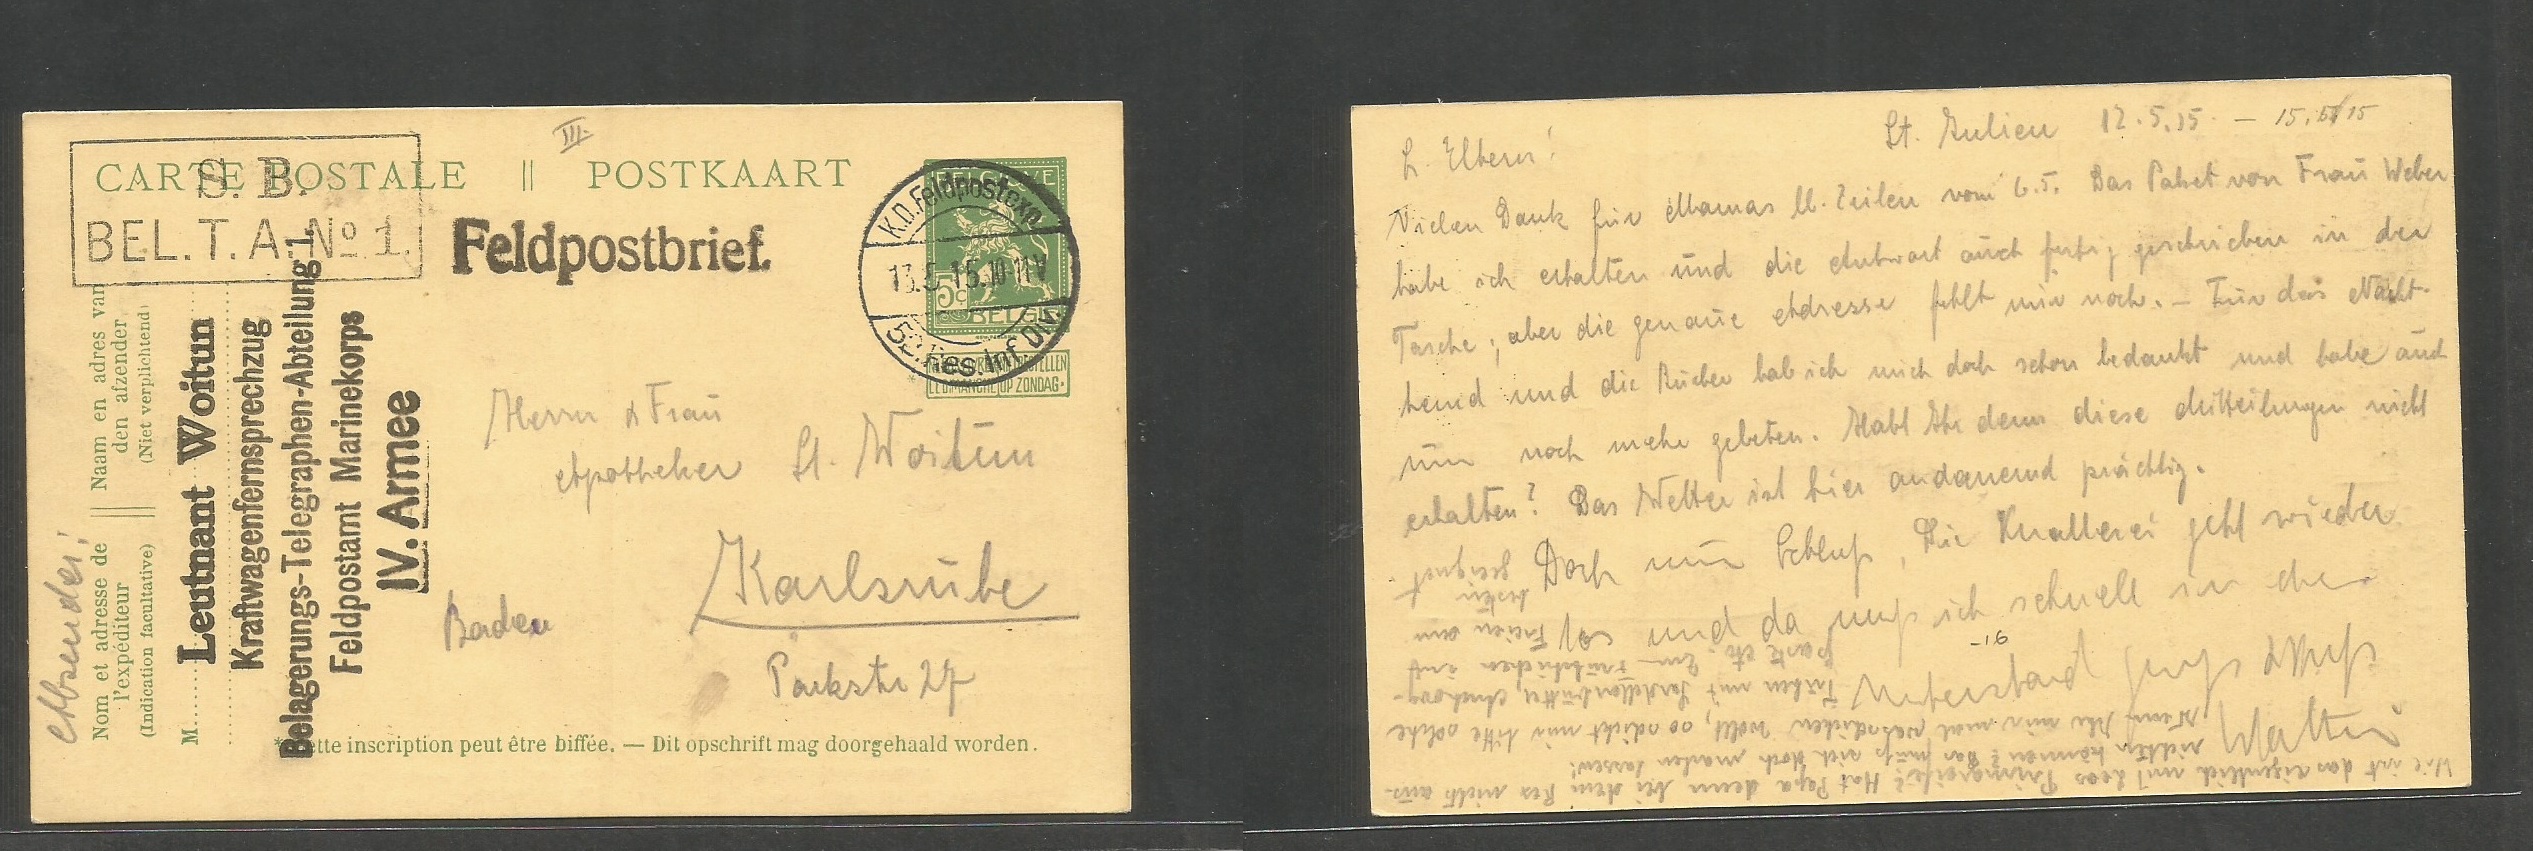 III.
CARTE POSTALE || POSTKAART
S. B.
BEL. T. A. No 1.
Feldpostbrief.
BELGIQUE
5c
BELGIË
K.D. Feldpostexp.
13.5.15.10-11V
52. Res. Inf. Div.
NE PAS LIVRER NIET BESTELLEN
LE DIMANCHE OP ZONDAG
Absender:
Nom et adresse de || Naam en adres van
l'expéditeur den afzender
(Indication facultative) (Niet verplichtend)
M
Leutnant Woitun
Kraftwagenfernsprechzug
Belagerungs-Telegraphen-Abteilung 1.
Feldpostamt Marinekorps
IV. Armee
Herrn & Frau
Apotheker St. Woitun
Karlsruhe
Baden
Parkstr 27
*Cette inscription peut être biffée. — Dit opschrift mag doorgehaald worden.
St. Julien 12.5.15. – 15.5/15
L. Eltern!
Vielen Dank für Mamas lb. Zeilen vom 6.5. Das Paket von Frau Weber
habe ich erhalten und die Antwort auch fertig geschrieben in der
Tasche; aber die genaue Adresse fehlt mir noch. – Für das Nacht-
hemd und die Bücher hab ich mich doch schon bedankt und habe auch
um noch mehr gebeten. Habt Ihr denn diese Mitteilungen nicht
erhalten? Das Wetter ist hier andauernd prächtig.
Doch nun Schluß, Die Knallerei geht wieder
los und da muß ich schnell in den
-16
Unterstand Gruß & Kuß
Walter
Wie ist das eigentlich mit Leos Primareife? Hat Papa denn bei dem Res nichts aus-
richten können? Das muß sich doch machen lassen!
Wenn Ihr mir mal was schicken wollt, so schickt mir bitte solche
Tuben mit Sardellenbutter, Anchovy-
paste etc. Zum Frühstücken auf
Freien am
besten
geeignet